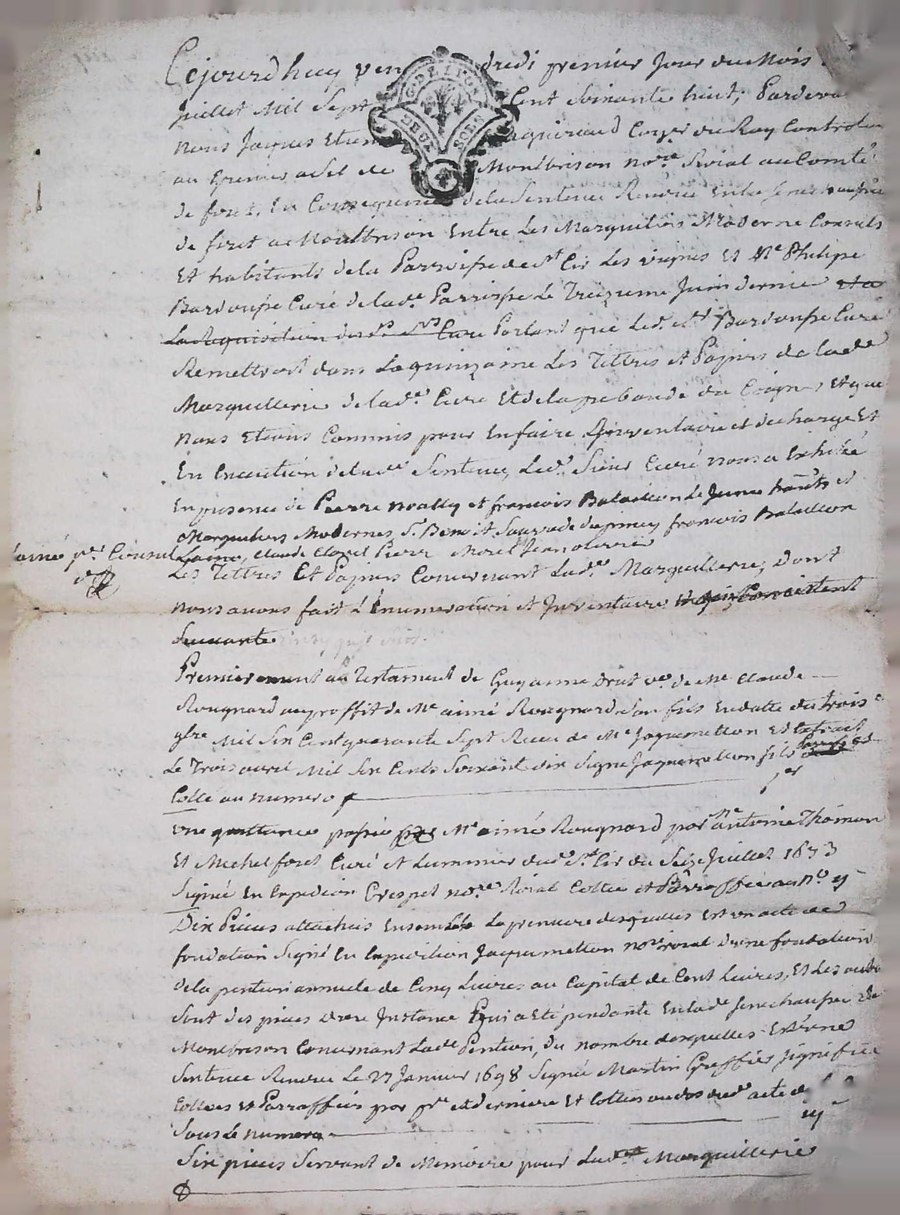 Cejourdhuy vendredi premier Jour du Mois
G. DE LYON
DEUX SOLS
Juillet Mil Sept Cent Soixante huit, Pardevant
nous Jacques Etienne Conser du Roy Controlleur
au Grenier a Sel de Montbrison nore Roial au Comté
de forez, En Consequence de la Sentence Rendue Entre
de foret a Montbrison Entre Les Marguilliers Moderne Consuls
Et habitants de la Parroisse de St Cir Les vignes Et Me Philipe
Bardousse Curé de lade Parroisse Le Treizieme Juin dernier et a
La Requisition dud Sr Curé Portant que Led. Sr Bardousse Curé
Remettroit dans La quinzaine Les Tittres et Papiers de lade
Marguillerie de lade Cure Et de la prebande du Et que
nous Etions Commis pour En faire Linventaire et decharge Et
En Execution de lade Sentence, Led. Sieur Curé nous a Exhibé
En presence de Pierre noally et francois Bataillon Le Jeune hants et
Marguiliers Modernes Sr Benoit francois Bataillon
Lainé, Claude Clozel Pierre Morel
Lainé Consul
Les Tittres Et Papiers Concernant Lade Marguillerie, Dont
nous avons fait L'Enumeration et Inventaire
Suivante
Premierement un Testament de Guyanne Drut ve de Me Claude
Rougnard au proffit de Me aimé Rougnard son fils En datte du trois
gbre Mil Six Cent quarante Sept Receu de Me Jaquemetton Et Extrait
Le Trois avril Mil Six Cents Soixant dix Signé Jaquemetton fils
Cotté au numero
une quittance passée Me aimé Rougnard par Me antoine Thomon
Et Michel foret Curé et Luminier dud. St Cir du Seize Juillet 1633
Signée En Expedion Crespet nore Roial Cottée et Parraffée au no ij
Dix Pieces attachées Ensemble La premiere desquelles Est un acte de
fondation Signé En Expedition Jaquemetton nore roial d'une fondation
de la pention annuele de Cinq Livres au Capital de Cent Livres, Et Les autres
Sont des pieces d'une Instance qui a Eté pendante En lade Senechaussée de
Montbrison Concernant Lade Pention, du nombre desquelles Est une
Sentence Rendue Le 27 Janvier 1698 Signée Martin Greffier Signiffiée
Cottées et Parraffées par pre et derniere Et Cottées au dos dud. acte de
Sous Le numero iij
Six pieces Servant de Memoire pour Lade Marguillerie